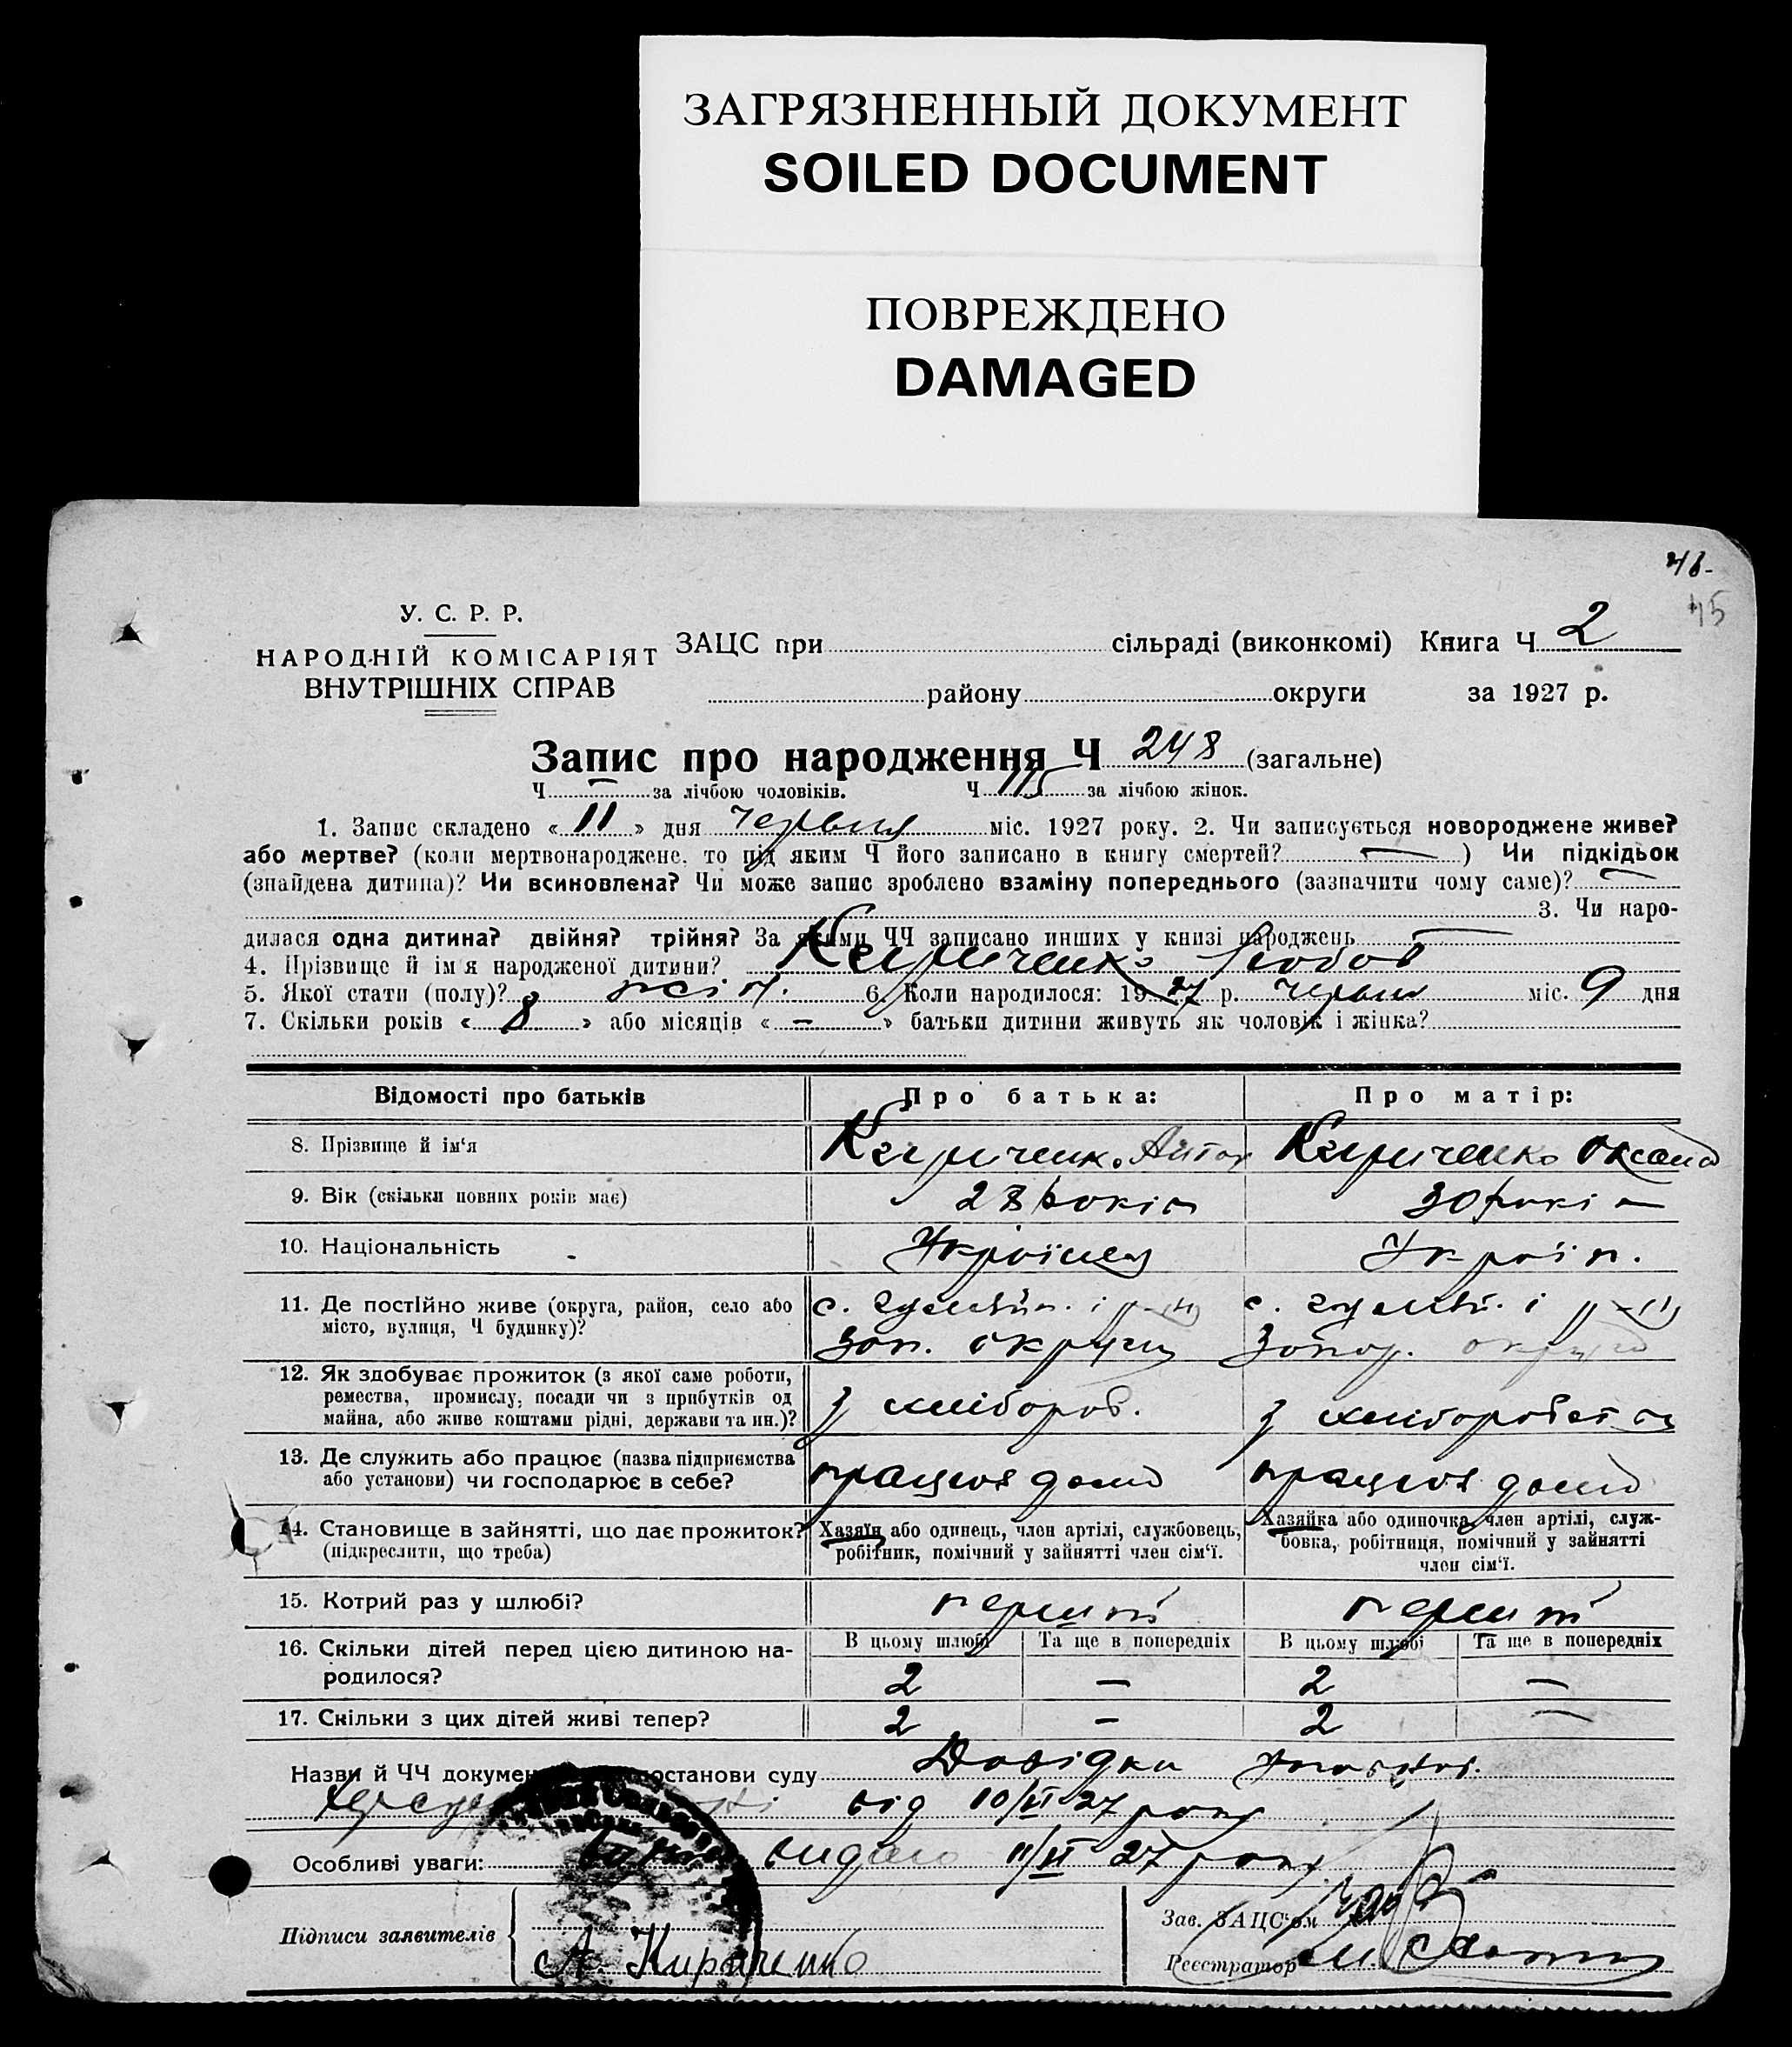 ЗАГРЯЗНЕННЫЙ ДОКУМЕНТ
SOILED DOCUMENT
ПОВРЕЖДЕНО
DAMAGED
У. С. Р. Р.
НАРОДНІЙ КОМІСАРІЯТ
ВНУТРІШНІХ СПРАВ
ЗАЦС при сільраді (виконкомі) Книга Ч 2
району округи за 1927 р.
Запис про народження Ч 248 (загальне)
Ч — за лічбою чоловіків. Ч 115 за лічбою жінок.
1. Запис складено « 11 » дня червня міс. 1927 року. 2. Чи записується новороджене живе?
або мертве? (коли мертвонароджене, то під яким Ч його записано в книгу смертей? — ) Чи підкідьок
(знайдена дитина)? Чи всиновлена? Чи може запис зроблено взаміну попереднього (зазначити чому саме)? —
3. Чи наро-
дилася одна дитина? двійня? трійня? За якими ЧЧ записано инших у книзі народжень —
4. Прізвище й ім'я народженої дитини? Кириченко Любов
5. Якої стати (полу)? жін. 6. Коли народилося: 1927 р. червня міс. 9 дня
7. Скільки років « 8 » або місяців « — » батьки дитини живуть як чоловік і жінка?
Відомості про батьків Про батька: Про матір:
8. Прізвище й ім'я Кириченко Антон Кириченко Оксана
9. Вік (скільки повних років має) 28 років 30 років
10. Національність Українец Україн.
11. Де постійно живе (округа, район, село або
місто, вулиця, Ч будинку)?
с. і с. і
Зап. округи Запор. округи
12. Як здобуває прожиток (з якої саме роботи,
ремества, промислу, посади чи з прибутків од
майна, або живе коштами рідні, держави та ин.)?
з хлібороб. з хліборобства
13. Де служить або працює (назва підприємства
або установи) чи господарює в себе?
працює дома працює дома
14. Становище в зайнятті, що дає прожиток?
(підкреслити, що треба)
Хазяїн або одинець, член артілі, службовець,
робітник, помічний у зайнятті член сім'ї.
Хазяйка або одиночка, член артілі, служ-
бовка, робітниця, помічний у зайнятті
член сім'ї.
15. Котрий раз у шлюбі? перший перший
16. Скільки дітей перед цією дитиною на-
родилося?
В цьому шлюбі Та ще в попередніх В цьому шлюбі Та ще в попередніх
2 — 2 —
17. Скільки з цих дітей живі тепер? 2 — 2 —
Назви й ЧЧ докумен постанови суду Довідка
від 10/VI 27 року
Особливі уваги: видано 11/VI 27 року
Підписи заявителів
А. Кириченко
Зав. ЗАЦС'ом
Реєстратор